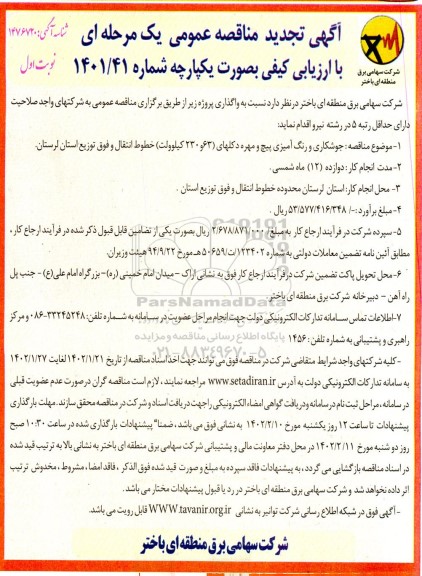 شناسه آگهی: ۱۴۷۶۷۲۰
نوبت اول
آگهی تجدید مناقصه عمومی یک مرحله ای
با ارزیابی کیفی بصورت یکپارچه شماره ۱۴۰۱/۴۱
شرکت سهامی برق
منطقه ای باختر
شرکت سهامی برق منطقه ای باختر در نظر دارد نسبت به واگذاری پروژه زیر از طریق برگزاری مناقصه عمومی به شرکتهای واجد صلاحیت
دارای حداقل رتبه ۵ در رشته نیرو اقدام نماید:
۱- موضوع مناقصه: جوشکاری و رنگ آمیزی پیچ و مهره دکلهای (۶۳و ۲۳۰ کیلوولت) خطوط انتقال و فوق توزیع استان لرستان.
۲-مدت انجام کار: دوازده (۱۲) ماه شمسی.
۳- محل انجام کار: استان لرستان محدوده خطوط انتقال و فوق توزیع استان .
۴- مبلغ برآورد: -/۵۳/۵۷۷/۴۱۶/۳۴۸ ریال
۵- سپرده شرکت در فرآیند ارجاع کار به مبلغ ۲/۶۷۸/۸۷۱/۰۰۰ ریال بصورت یکی از تضامین قابل قبول ذکر شده در فرآیند ارجاع کار ،
مطابق آئین نامه تضمین معاملات دولتی به شماره ۱۲۳۴۰۲/ت۵۰۶۵۹ هـ مورخ ۹۴/۹/۲۲ هیئت وزیران.
۶- محل تحویل پاکت تضمین شرکت در فرآیند ارجاع کار فوق به نشانی اراک - میدان امام خمینی (ره)- بزرگراه امام علی(ع) - جنب پل
راه آهن - دبیرخانه شرکت برق منطقه ای باختر.
۷-اطلاعات تماس سامانه تدارکات الکترونیکی دولت جهت انجام مراحل عضویت در سامانه به شماره تلفن: ۳۳۲۴۵۲۴۸-۰۸۶ و مرکز
راهبری و پشتیبانی به شماره تلفن: ۱۴۵۶
-کلیه شرکتهای واجد شرایط متقاضی شرکت در مناقصه فوق می توانند جهت اخذ اسناد مناقصه از تاریخ ۱۴۰۲/۱/۲۱ لغایت ۱۴۰۲/۱/۲۷
به سامانه تدارکات الکترونیکی دولت به آدرس www.setadiran.ir مراجعه نمایند ، لازم است مناقصه گران در صورت عدم عضویت قبلی
در سامانه ، مراحل ثبت نام در سامانه و دریافت گواهی امضاء الکترونیکی را جهت دریافت اسناد و شرکت در مناقصه محقق سازند. مهلت بارگذاری
پیشنهادات تا ساعت ۱۲ روز یکشنبه مورخ ۱۴۰۲/۲/۱۰ به نشانی فوق می باشد ، ضمنا" پیشنهادات بارگذاری شده در ساعت ۱۰:۳۰ صبح
روز دو شنبه مورخ ۱۴۰۲/۲/۱۱ در محل دفتر معاونت مالی و پشتیبانی شرکت سهامی برق منطقه ای باختر به نشانی بالا به ترتیب قید شده
در اسناد مناقصه بازگشایی می گردد ، به پیشنهادات فاقد سپرده به مبلغ و صورت قید شده فوق الذکر ، فاقد امضا ، مشروط ، مخدوش ترتیب
اثر داده نخواهد شد و شرکت سهامی برق منطقه ای باختر در رد یا قبول پیشنهادات مختار می باشد.
-آگهی فوق در شبکه اطلاع رسانی شرکت توانیر به نشانی WWW.tavanir.org.ir قابل رویت می باشد.
شرکت سهامی برق منطقه ای باختر
ParsNamadData
پایگاه اطلاع رسانی مناقصه و مزایده
۰۲۱-۸۸۳۴۹۶۷۰-۵